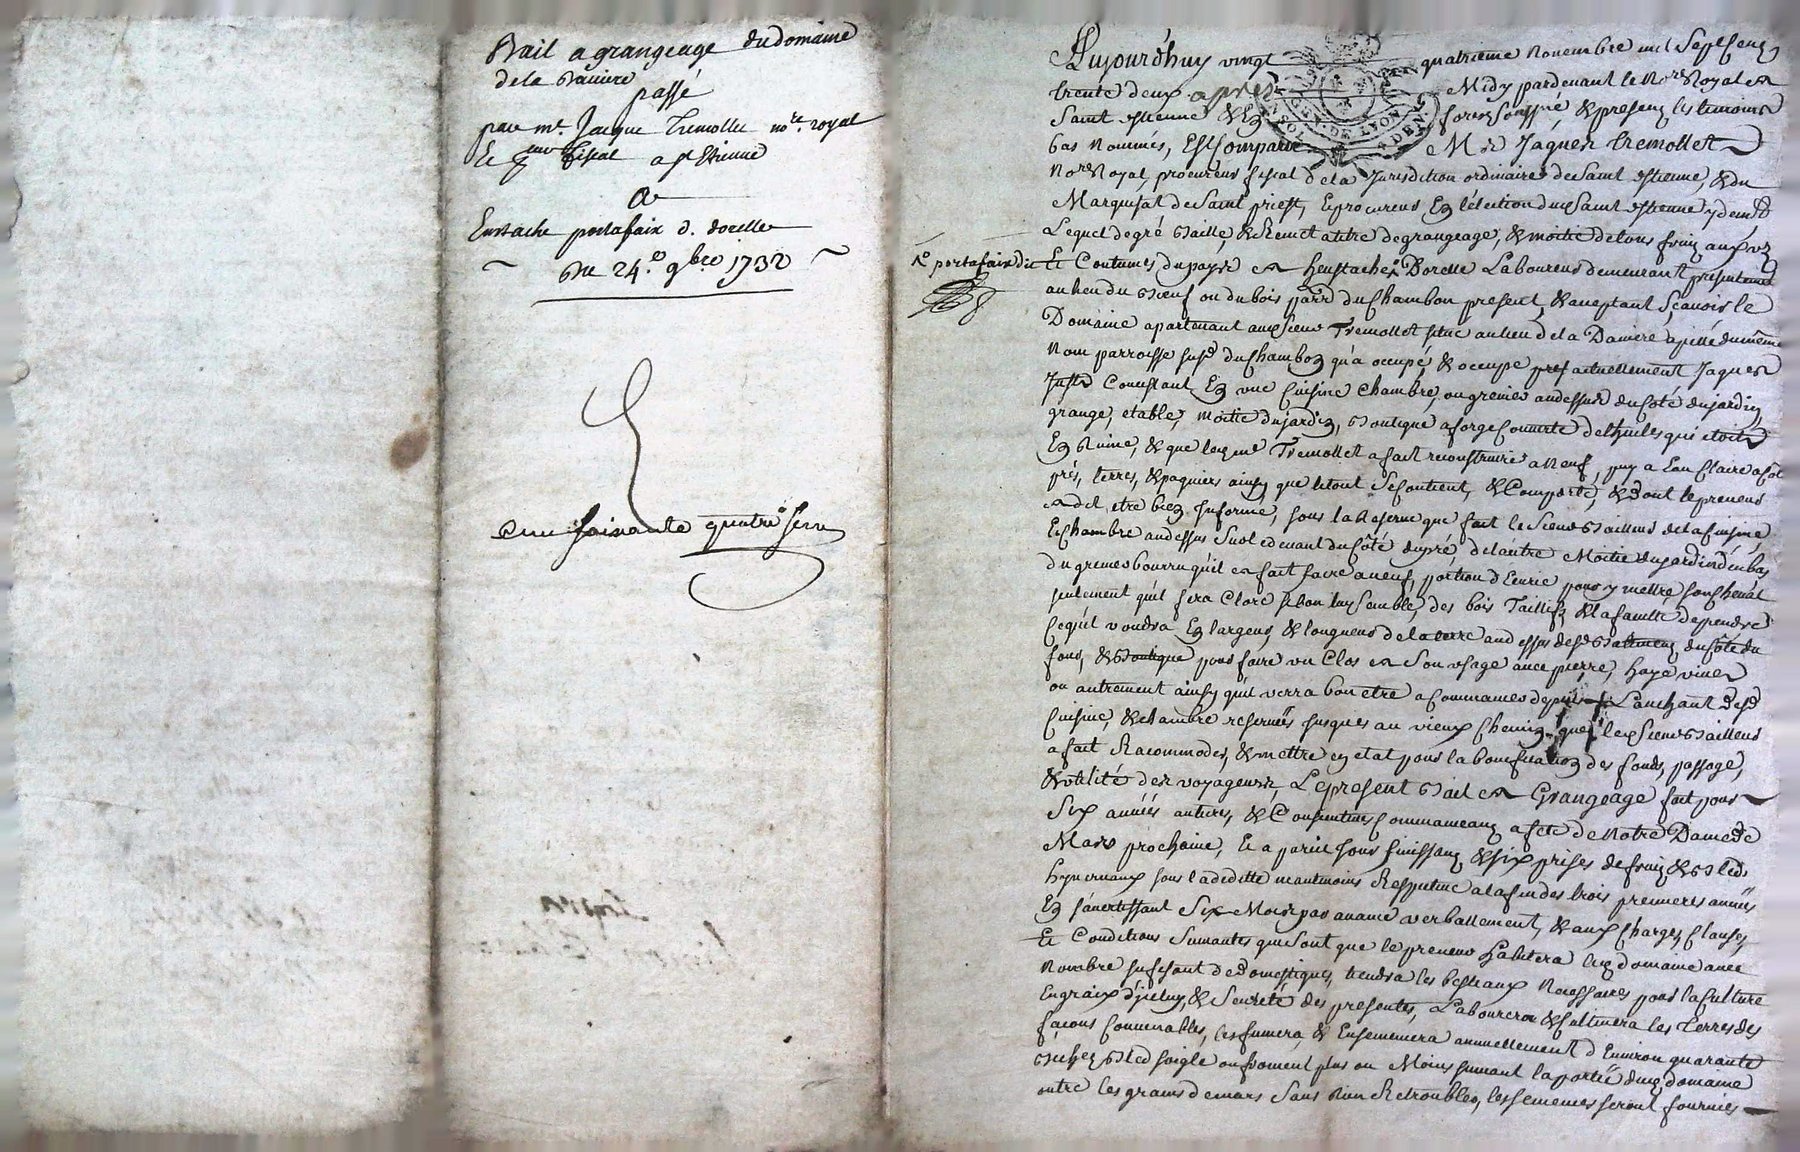 Bail a grangeage du domaine
de la Daniere
passé
par mr. Jacque Tremollet nore. royal
Et fiscal a st Etienne
A
Eustache portafaix d. dorelle
Du 24.e 9bre 1732
cent soixante quatre
Aujourd'huy vingt quatrieme novembre mil sept cens
trente deux apres Midy pardevant le Nore Royal en
forez soussné, & presens les temoins
bas nommés, Est Comparu Mre Jaques tremollet
Nore Royal, procureur fiscal de la Jurisdiction ordinaire de Saint estienne, & du
Marquisat de Saint priest, & procureur En l'élection dud Saint estienne y demt
Lequel de gré Baille, & Remet a titre de grangeage, & moitié de tous fruiz aux us
Et Coutumes du pays a heustache Dorelle Laboureur demeurant presentement
portafaix dit
au lieu du Bœuf ou du bois parr du Chambon present, & aceptant Scavoir le
Domaine apartenant aud Sieur Tremollet situé au lieu de la Daniere apellé du même
Nom parroisse susd du Chambon qu'a occupé, & occupe actuellement Jaques
Just Coustant En une Cuisine Chambre, ou grenier au dessus du Côté du jardin,
grange, etable, moitié du jardin, Boutique a forge Couverte de thuiles qui etoit
En Ruine, & que led sr Tremollet a fait reconstruire a Neuf, puy a Eau Claire a Côté
prés, terres, & paquiers ainsy que le tout Se Contient, & Comporte, & dont le preneur
a dit etre bien Informé, sous la Reserve que fait le Sieur Bailleur de la Cuisine,
Et Chambre au dessus du Côté du pré, de l'autre Moitié du jardin d'en bas
du grenier qu'il a fait faire a neuf, portion d'Ecurie pour y mettre son Cheval
seulement qu'il fera Clore Si bon luy Semble, des bois Taillifs, & la faculté de prendre
Ce qu'il voudra En largeur, & longueur de la terre au dessus desd Batimens, du Côté du
fons, & Boutique pour faire un Clos a Son usage avec pierre, haye vives
ou autrement ainsy qu'il verra bon etre a Commancer depuis Couchant desd
Cuisine, & chambre reservées jusques au vieux Chemin que led Sieur Bailleur
a fait Racommoder, & mettre en etat pour la bonification des fonds, passage,
& utilité des voyageurs, Le present Bail a Grangeage fait pour
Six années entieres, & Consecutives Commançans a fete de Notre Dame de
Mars prochaine, Et a pareil jour finissans, & six prises de fruiz, & Bleds
hyvernaux sous la dedite neantmoins Respective a la fin des trois premieres années
En s'avertissant Six Mois par avance verballement, & aux Charges, Clauses,
Et Conditions Suivantes qui Sont que le preneur habitera led domaine avec
Nombre sufisant de domestiques, tiendra les bestiaux Necessaires pour la Culture
Engraix d'iceluy, & Seureté des presentes, Labourera & Cultivera les terres des
façons Convenables, les fumera, & Ensemencera annuellement d'Environ quarante
Bichez Bled soigle ou froment plus ou Moins suivant la portée dud domaine
outre les grains de mars Sans Rien Retroubler, les semences seront fournies